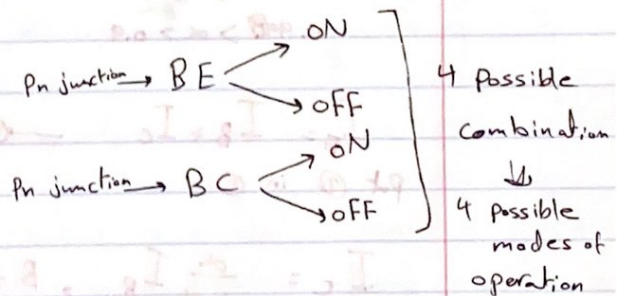 ON
Pn junction → BE
OFF
ON
Pn junction → BC
OFF
4 Possible
combination
↓
4 possible
modes of
operation